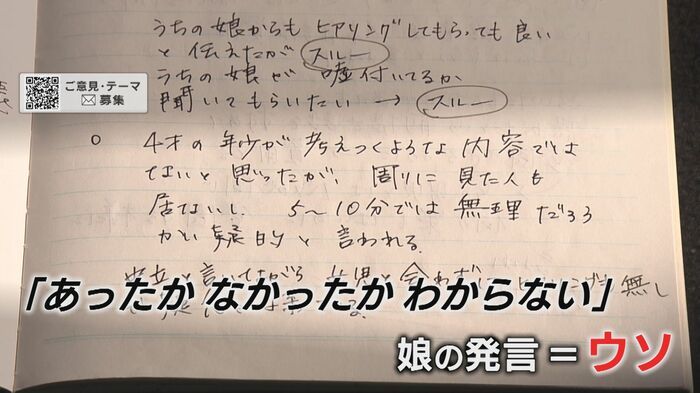 うちの娘からも ヒアリングしてもらっても良い
と伝えたが スルー
うちの娘が 嘘付いてるか
聞いてもらいたい → スルー
ご意見・テーマ
募集
○ 4才の 娘が 考えつくような 内容では
ないと 思ったが、周りに 見た人も
居ないし、5〜10分では 無理だろ
疑問的と 言われる.
と言いながら
無し
「あったか なかったか わからない」
娘の発言＝ウソ